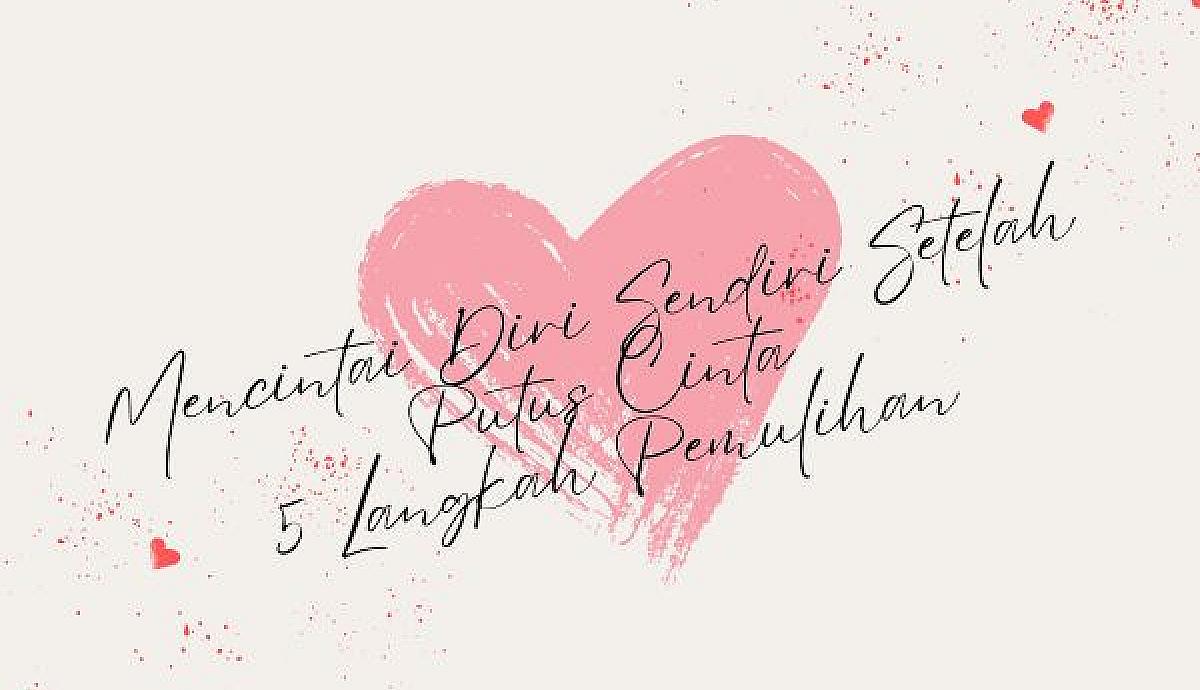 Mencintai Diri Sendiri Setelah
Putus Cinta
5 Langkah Pemulihan